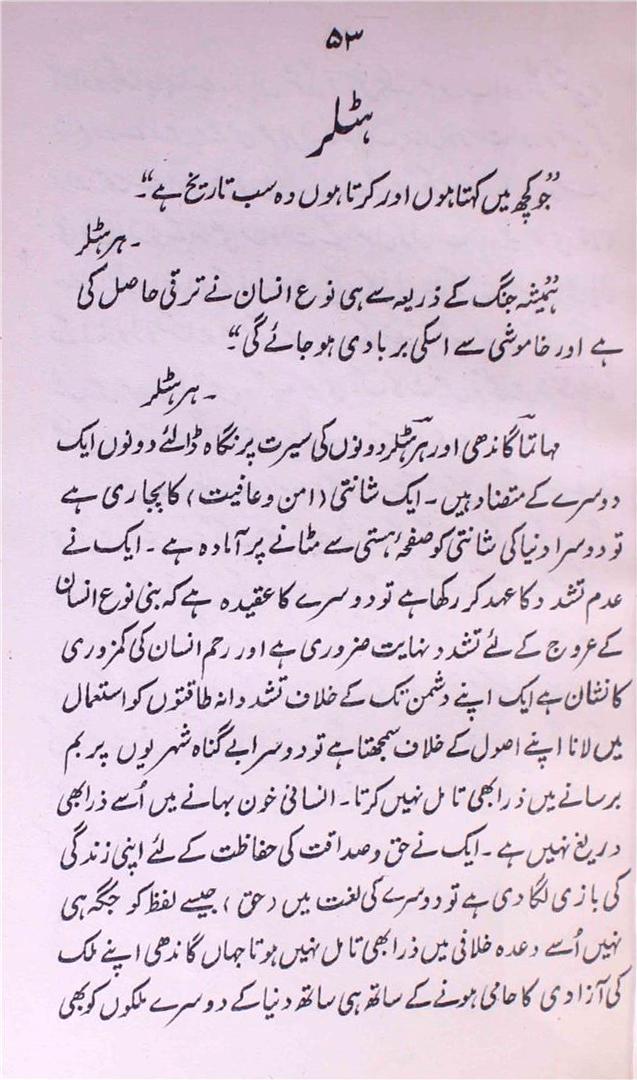 ۵۳
ہٹلر
”جو کچھ میں کہتا ہوں اور کرتا ہوں وہ سب تاریخ ہے“۔
۔ہر ہٹلر
”ہمیشہ جنگ کے ذریعہ سے ہی نوع انسان نے ترقی حاصل کی
ہے اور خاموشی سے اسکی بربادی ہو جائے گی“
۔ہر ہٹلر
مہاتما گاندھی اور ہر ہٹلر دونوں کی سیرت پر نگاہ ڈالئے دونوں ایک
دوسرے کے متضاد ہیں۔ ایک شانتی (امن و عافیت) کا پجاری ہے
تو دوسرا دنیا کی شانتی کو صفحۂ ہستی سے مٹانے پر آمادہ ہے۔ ایک نے
عدم تشدد کا عہد کر رکھا ہے تو دوسرے کا عقیدہ ہے کہ بنی نوع انسان
کے عروج کے لئے تشدد نہایت ضروری ہے اور رحم انسان کی کمزوری
کا نشان ہے ایک اپنے دشمن تک کے خلاف تشددانہ طاقتوں کو استعمال
میں لانا اپنے اصول کے خلاف سمجھتا ہے تو دوسرا بے گناہ شہریوں پر بم
برسانے میں ذرا بھی تامل نہیں کرتا۔ انسانی خون بہانے میں اُسے ذرا بھی
دریغ نہیں ہے۔ ایک نے حق و صداقت کی حفاظت کے لئے اپنی زندگی
کی بازی لگا دی ہے تو دوسرے کی لغت میں (حق) جیسے لفظ کو جگہ ہی
نہیں اُسے وعدہ خلافی میں ذرا بھی تامل نہیں ہوتا جہاں گاندھی اپنے ملک
کی آزادی کا حامی ہونے کے ساتھ ہی ساتھ دنیا کے دوسرے ملکوں کو بھی